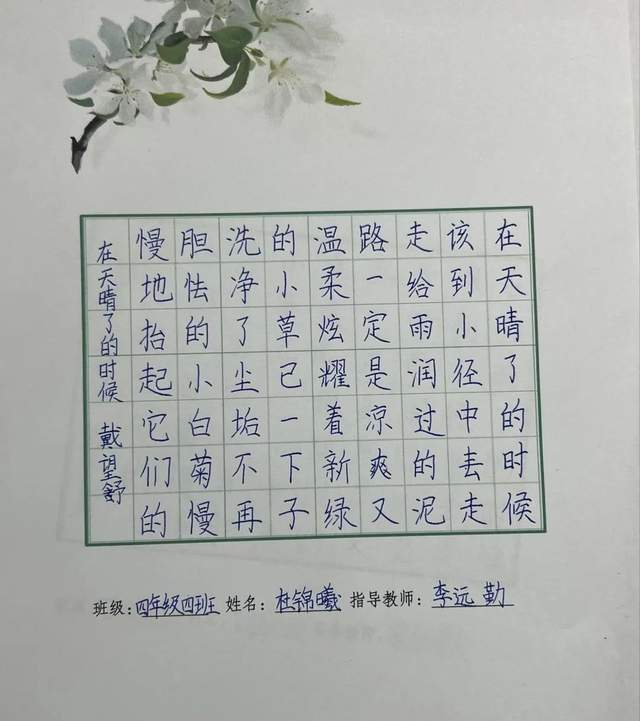 在天晴了的时候
该到小径中丢走
走给雨润过的泥
路一定是凉爽又
温柔炫耀着新绿
的小草已一下子
洗净了尘垢不再
胆怯的小白菊慢
慢地抬起它们的
在天晴了的时候 戴望舒
班级：四年级四班 姓名：杜锦曦 指导教师：李远勤